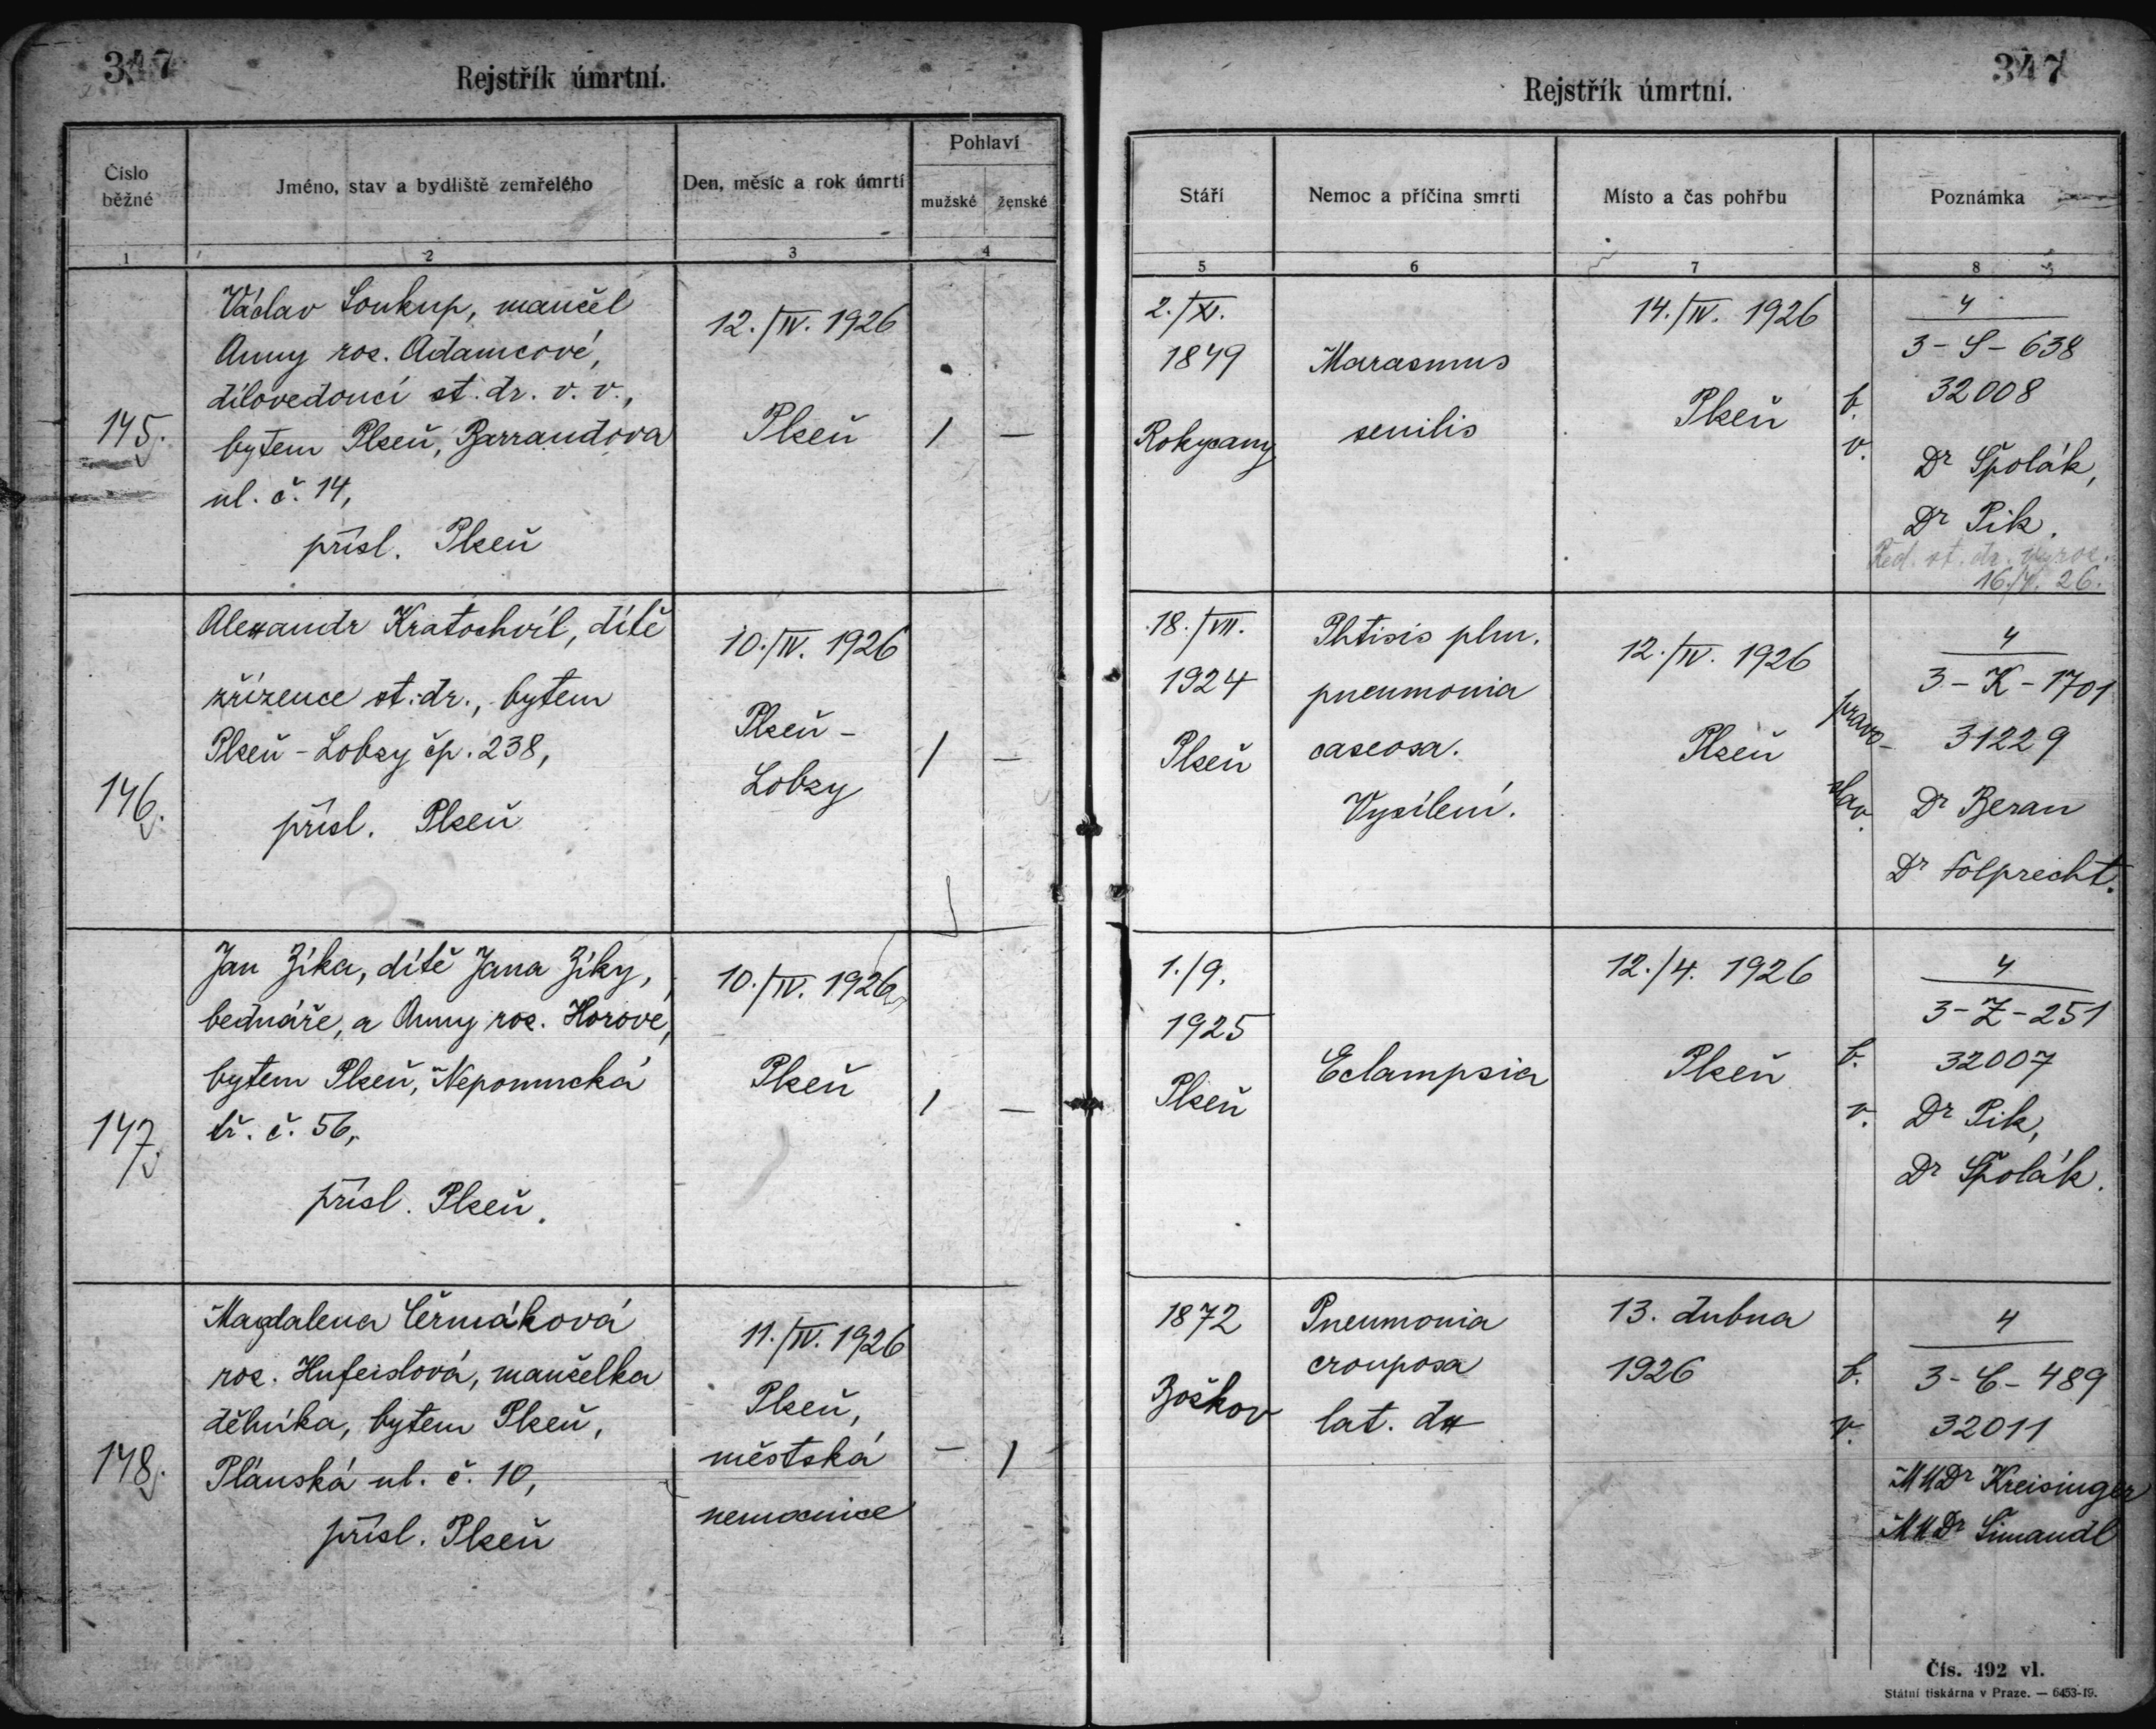 347
Rejstřík úmrtní.
Číslo běžné
Jméno, stav a bydliště zemřelého
Den, měsíc a rok úmrtí
Pohlaví
mužské
ženské
1
2
3
4
145.
Václav Soukup, manžel
Anny roz. Adamcové,
dílovedoucí st. dr. v. v.,
bytem Plzeň, Barrandova
ul. č. 14,
přísl. Plzeň
12./IV. 1926
Plzeň
1
—
146.
Alexandr Kratochvíl, dítě
zřízence st. dr., bytem
Plzeň - Lobzy čp. 238,
přísl. Plzeň
10./IV. 1926
Plzeň -
Lobzy
1
—
147.
Jan Zíka, dítě Jana Zíky,
bednáře, a Anny roz. Horové,
bytem Plzeň, Nepomucká
tř. č. 56,
přísl. Plzeň.
10./IV. 1926
Plzeň
1
—
148.
Magdalena Čermáková
roz. Hufeislová, manželka
dělníka, bytem Plzeň,
Plánská ul. č. 10,
přísl. Plzeň
11./IV. 1926
Plzeň,
městská
nemocnice
—
1
347
Rejstřík úmrtní.
Stáří
Nemoc a příčina smrti
Místo a čas pohřbu
Poznámka
5
6
7
8
2./XI.
1849
Rokycany
Marasmus
senilis
14./IV. 1926
Plzeň
b.
v.
4
3 - S - 638
32008
Dr Špolák,
Dr Pik.
Řed. st. dr.
26.
18./VII.
1924
Plzeň
Phtisis plm.
pneumonia
caseosa.
Vysílení.
12./IV. 1926
Plzeň
pravo-
slav.
4
3 - K - 1701
31229
Dr Beran
Dr Folprecht.
1./9.
1925
Plzeň
Eclampsia
12./4. 1926
Plzeň
b.
v.
4
3 - Z - 251
32007
Dr Pik,
Dr Špolák.
1872
Božkov
Pneumonia
crouposa
lat. dx
13. dubna
1926
b.
v.
4
3 - C - 489
32011
MUDr Kreisinger
MUDr Šimandl
Čís. 492 vl.
Státní tiskárna v Praze. — 6453-19.